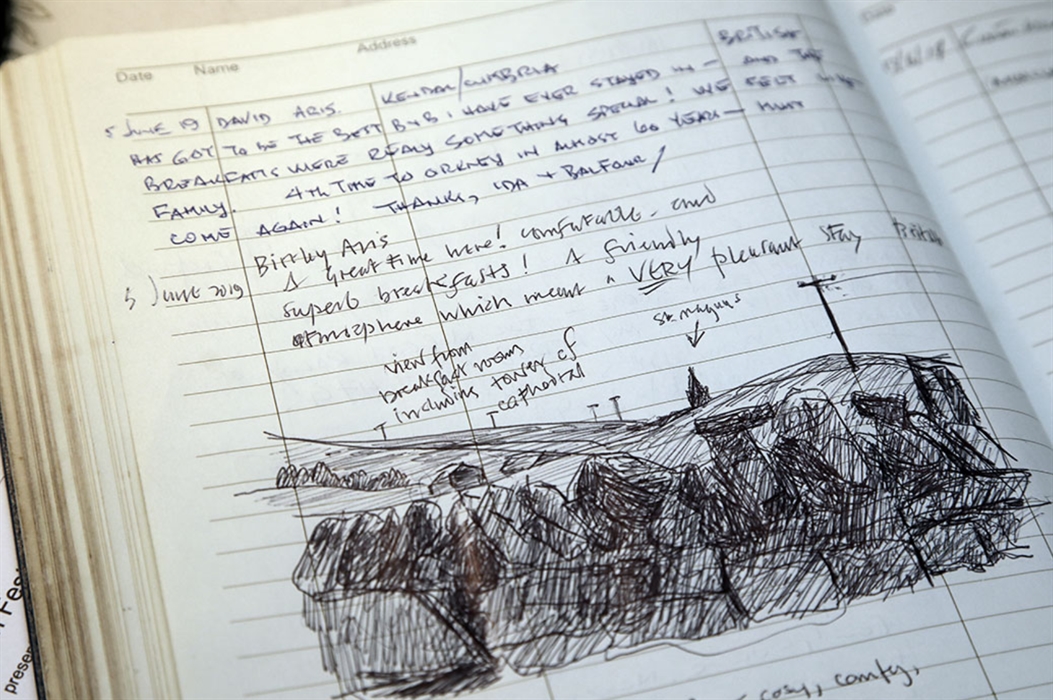 Date Name Address
BRITISH
5 JUNE 19 DAVID ARIS. KENDAL/CUMBRIA
HAS GOT TO BE THE BEST B+B I HAVE EVER STAYED IN - AND THE
BREAKFASTS WERE REALY SOMETHING SPECIAL! WE FELT LIKE
FAMILY. 4TH TIME TO ORKNEY IN ALMOST 60 YEARS - MUST
COME AGAIN! THANKS, IDA + BALFOUR/
Aris
5 June 2019 A great time here! comfortable and
superb breakfasts! A friendly
atmosphere which meant a VERY pleasant stay
view from
breakfast rooms
including tower of
cathedral
St. Magnus
cosy, comfy,
Date
Fes
presen